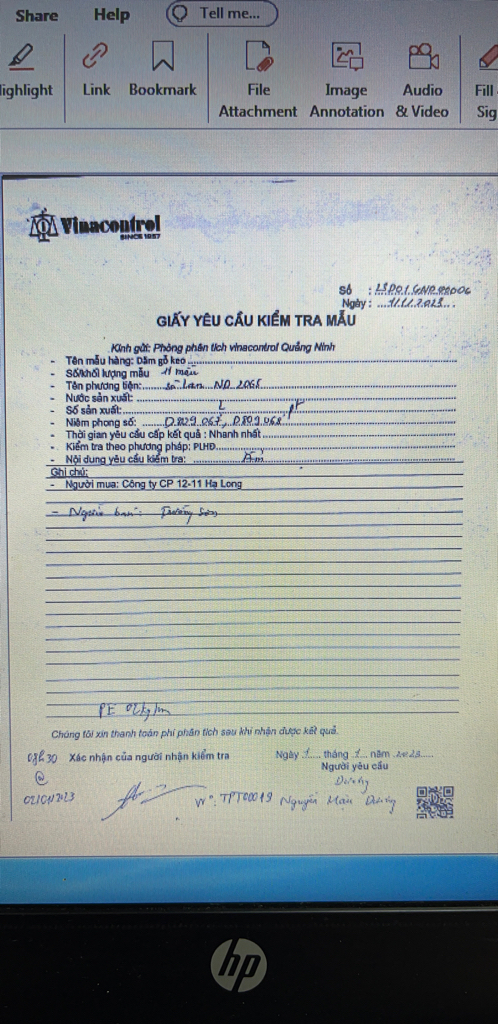 Share Help Tell me...
Highlight Link Bookmark File Attachment Image Annotation Audio & Video Fill Sig
Vinacontrol
SINCE 1957
Số :
Ngày : 1/1/2023
GIẤY YÊU CẦU KIỂM TRA MẪU
Kính gửi: Phòng phân tích vinacontrol Quảng Ninh
- Tên mẫu hàng: Dăm gỗ keo
- Số/khối lượng mẫu 11 mẫu
- Tên phương tiện: sà lan ND 2068
- Nước sản xuất:
- Số sản xuất:
- Niêm phong số: D.829.067, D.829.068
- Thời gian yêu cầu cấp kết quả : Nhanh nhất
- Kiểm tra theo phương pháp: PLHĐ
- Nội dung yêu cầu kiểm tra: Ẩm
Ghi chú:
- Người mua: Công ty CP 12-11 Hạ Long
- Người bán: Trường Sơn
PE
Chúng tôi xin thanh toán phí phân tích sau khi nhận được kết quả.
08h30 Xác nhận của người nhận kiểm tra
Ngày 1 tháng 1 năm 2023
Người yêu cầu
@
02/01/2023
Dương
N°: TPT00019 Nguyễn Mậu Dương
hp